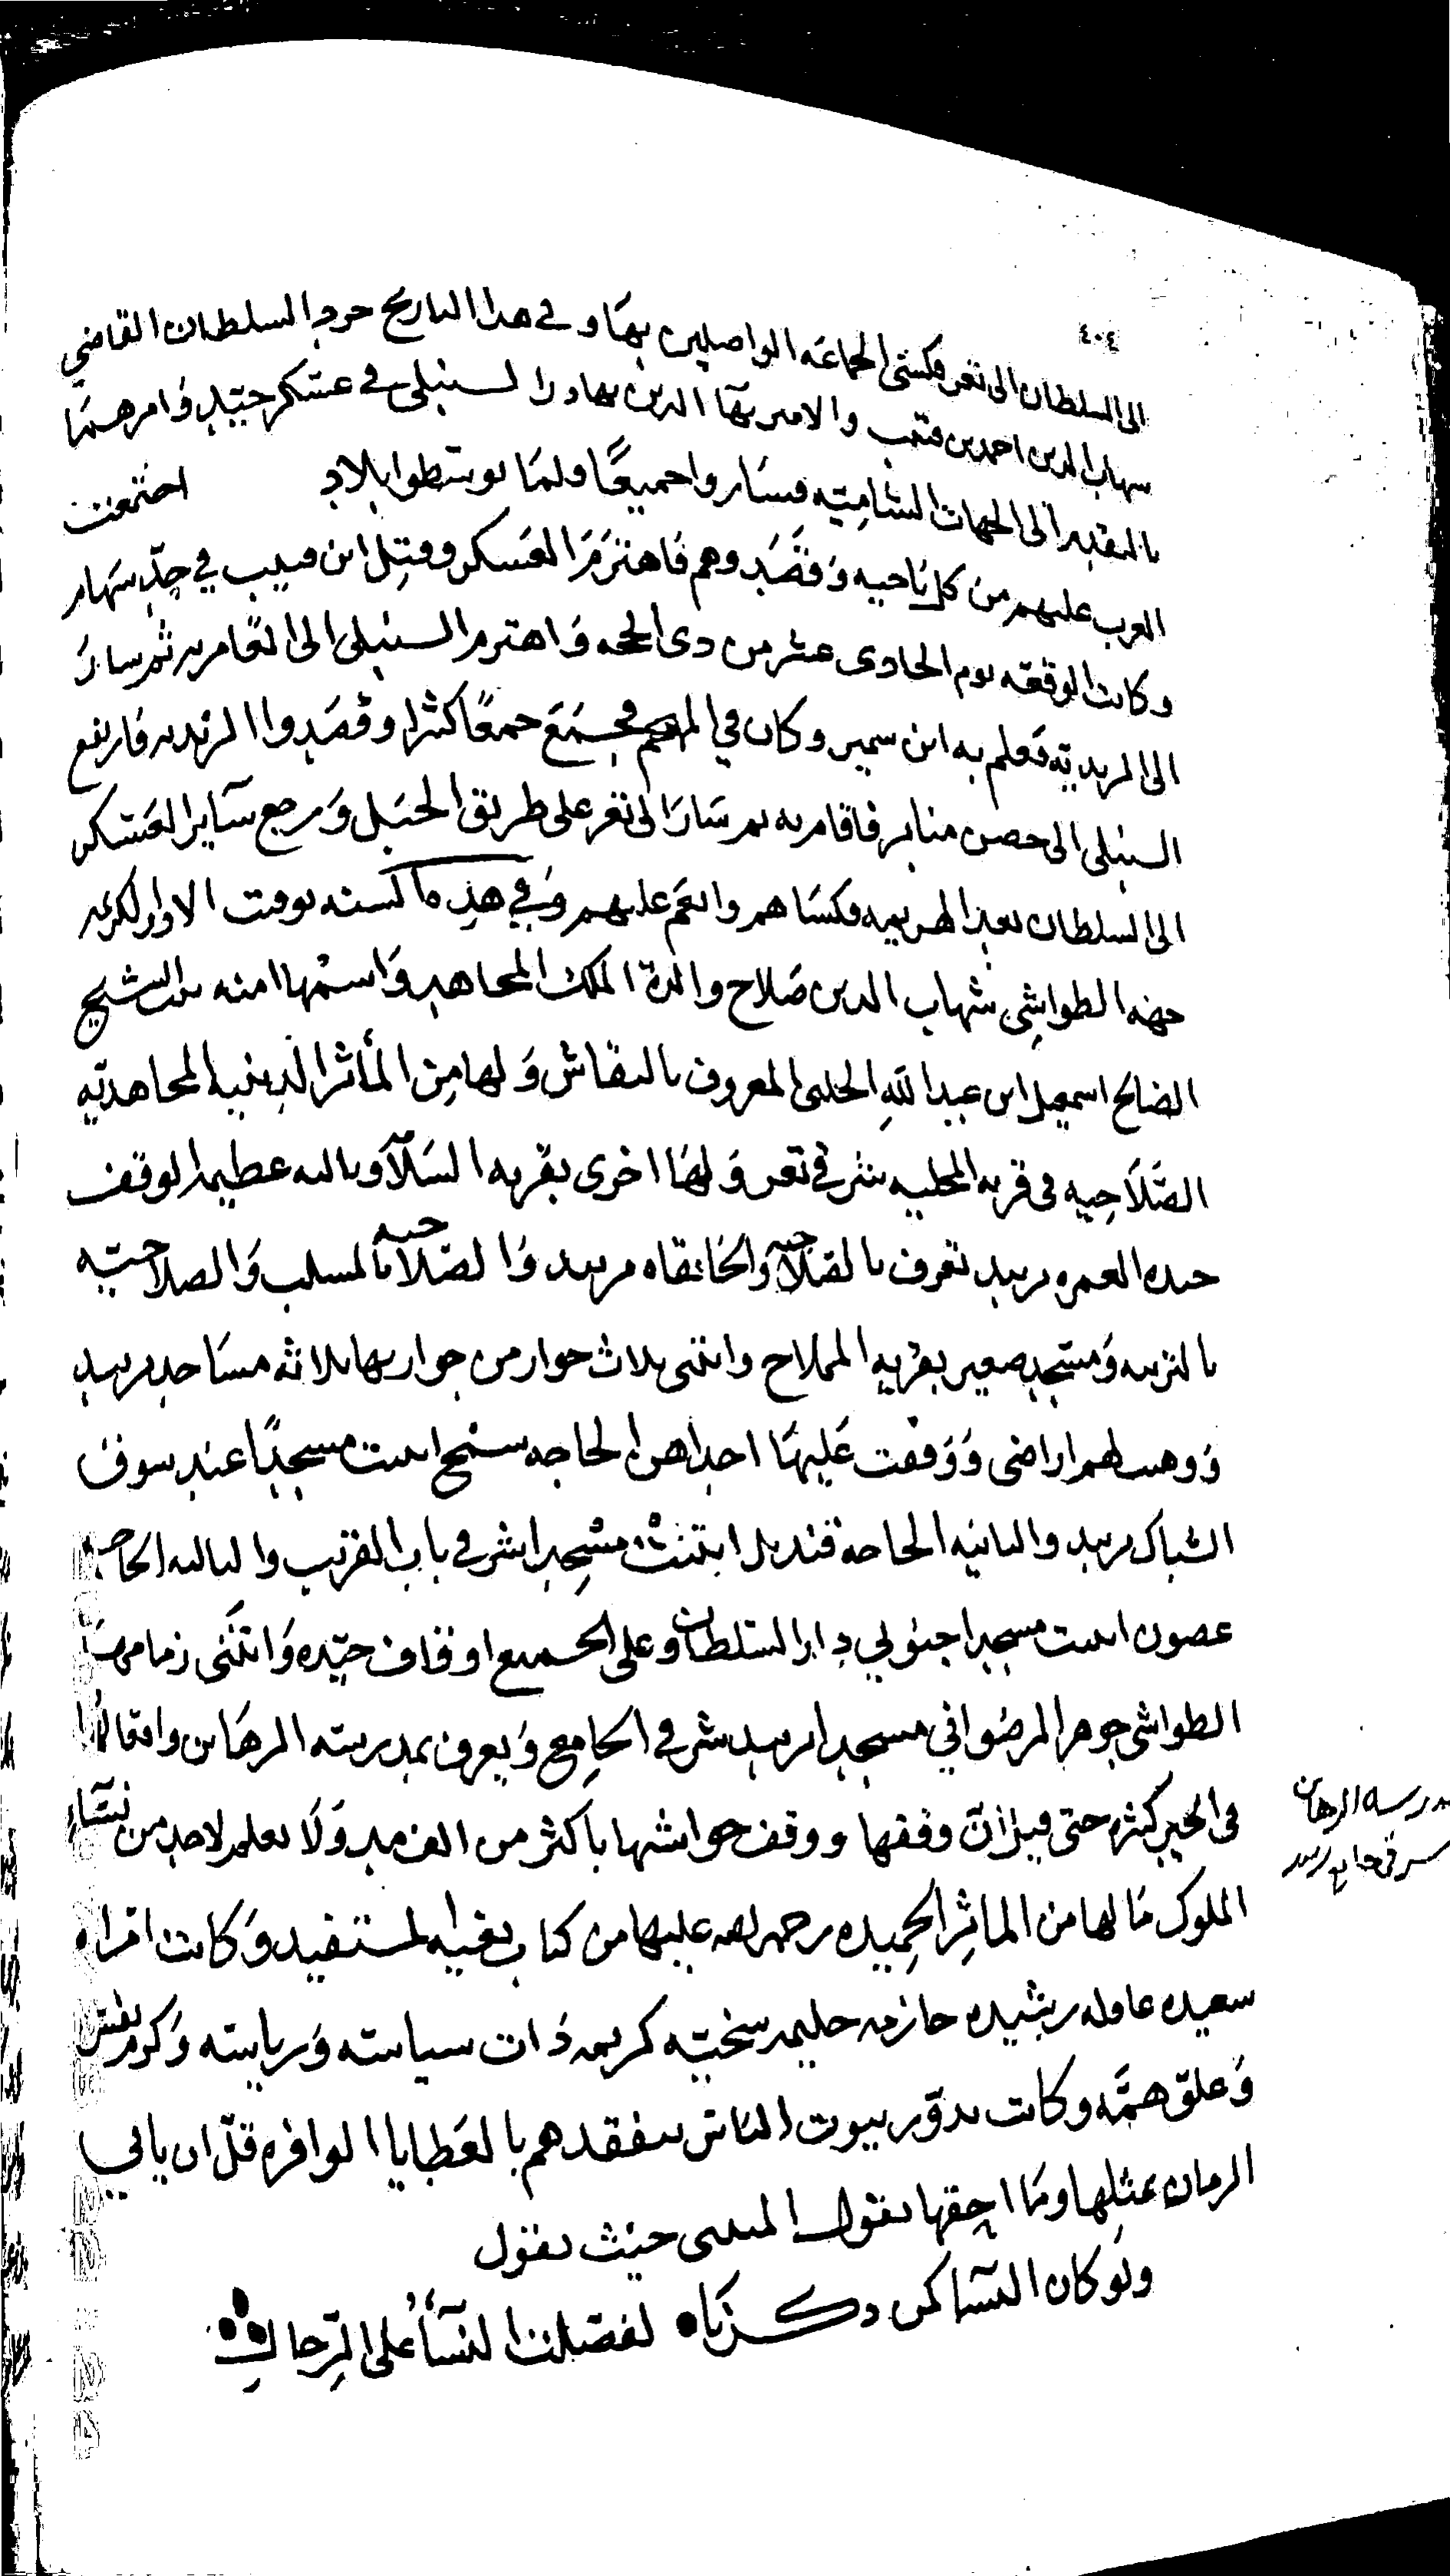 ٤٠٤
الى السلطان الى تعز فكسى الجماعه الواصلين بها و في هذا التاريخ جرد السلطان القاضي
شهاب الدين احمد بن قبيب والامير بها الدين بهادر السنبلى في عسكر جيد و امرهما
بالتقدم الى الجهات الشاميه فساروا جميعًا ولما توسطوا بلاد اجتمعت
العرب عليهم من كل ناحيه و قصدوهم فاهتزم العسكر وقتل ابن قبيب في جدّ سهام
و كانت الوقعه يوم الحادى عشر من ذى الحجه و اهتزم السنبلى الى القامريه ثم سار
الى المزيديه فعلم به ابن سمير و كان في المهجم فجمع جمعًا كثيرا و قصدوا المزيديه فارتفع
السنبلى الى حصن منابر فاقام به ثم سار الى تعز على طريق الجبل و رجع ساير العسكر
الى السلطان بعد الهزيمه فكساهم وانعم عليهم و في هذه السنه توفيت الادر الكريمه
جهه الطواشي شهاب الدين صلاح والدة الملك المجاهد و اسمها امنه بنت الشيخ
الصالح اسمعيل ابن عبد الله الحلبى المعروف بالنقاش و لها من المأثر الدينيه المجاهديه
الصّلاحيه فى قريه المحليه شرقي تعز و لها اخرى بقريه السلامه وبالله عظيم الوقف
جيده العمره بزبيد تعرف بالصّلاحيه والخانقاه بزبيد و الصّلاحيه بالمسلب و الصلاحيّه
بالتربيه و مسجد صغير بقريه المملاح وابتنى ثلاث جوار من جوارها ثلاثه مساجد بزبيد
و وهبت لهم اراضى و وقفت عليها احداهن الحاجه سنح ابتنت مسجدًا عند سوق
الشباك بزبيد والثانيه الحاجه قنديل ابتنت مسجدا شرقي باب القرتب والثالثه الحاجه
غصون ابتنت مسجدا جنوبي دار السلطان وعلى الجميع اوقاف جيّده و ابتنى زمامها
الطواشى جوهر الرضواني مسجدا بزبيد شرقي الجامع و يعرف بمدرسة الرهاين وافعالها
فى الخير كثيره حتى قيل انّ وقفها ووقف حواشها باكثر من الف مد و لا نعلم لاحد من نساء
الملوك ما لها من الماثر الحميده رحمه الله عليها من كتاب بغيه المستفيد و كانت امراه
سعيده عاقله رشيده حازمه حليمه سخيّه كريمه ذات سياسه و رياسه و كرم نفس
و علوّ همّه و كانت تدوّر بيوت الناس تتفقدهم بالعطايا الوافره قلّ ان ياتي
الزمان بمثلها وما احقها بقول المتنبى حيث يقول
ولو كان النسا كمن ذكرناه لفضلت النسآء على الرجال
مدرسه الرهاين
شرقى جامع زبيد